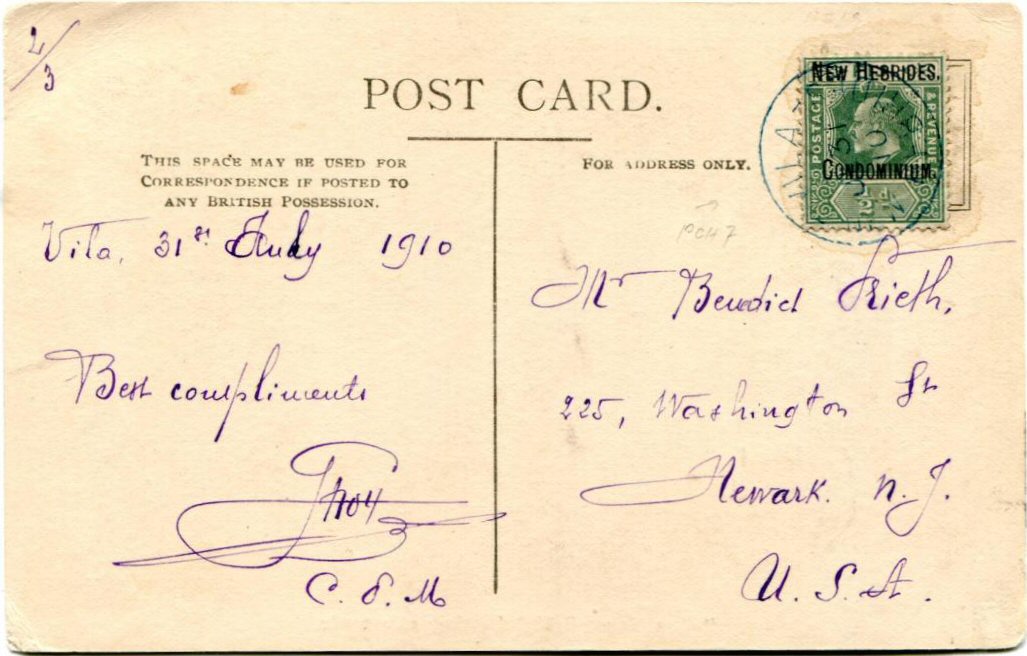 2/3
POST CARD.
THIS SPACE MAY BE USED FOR
CORRESPONDENCE IF POSTED TO
ANY BRITISH POSSESSION.
Vila, 31st July 1910
Best compliments
C. P. M
FOR ADDRESS ONLY.
NEW HEBRIDES.
POSTAGE & REVENUE
CONDOMINIUM.
1/2 d
VILA
Mr Benedict Frieth,
225, Washington St
Newark. N. J.
U. S. A.